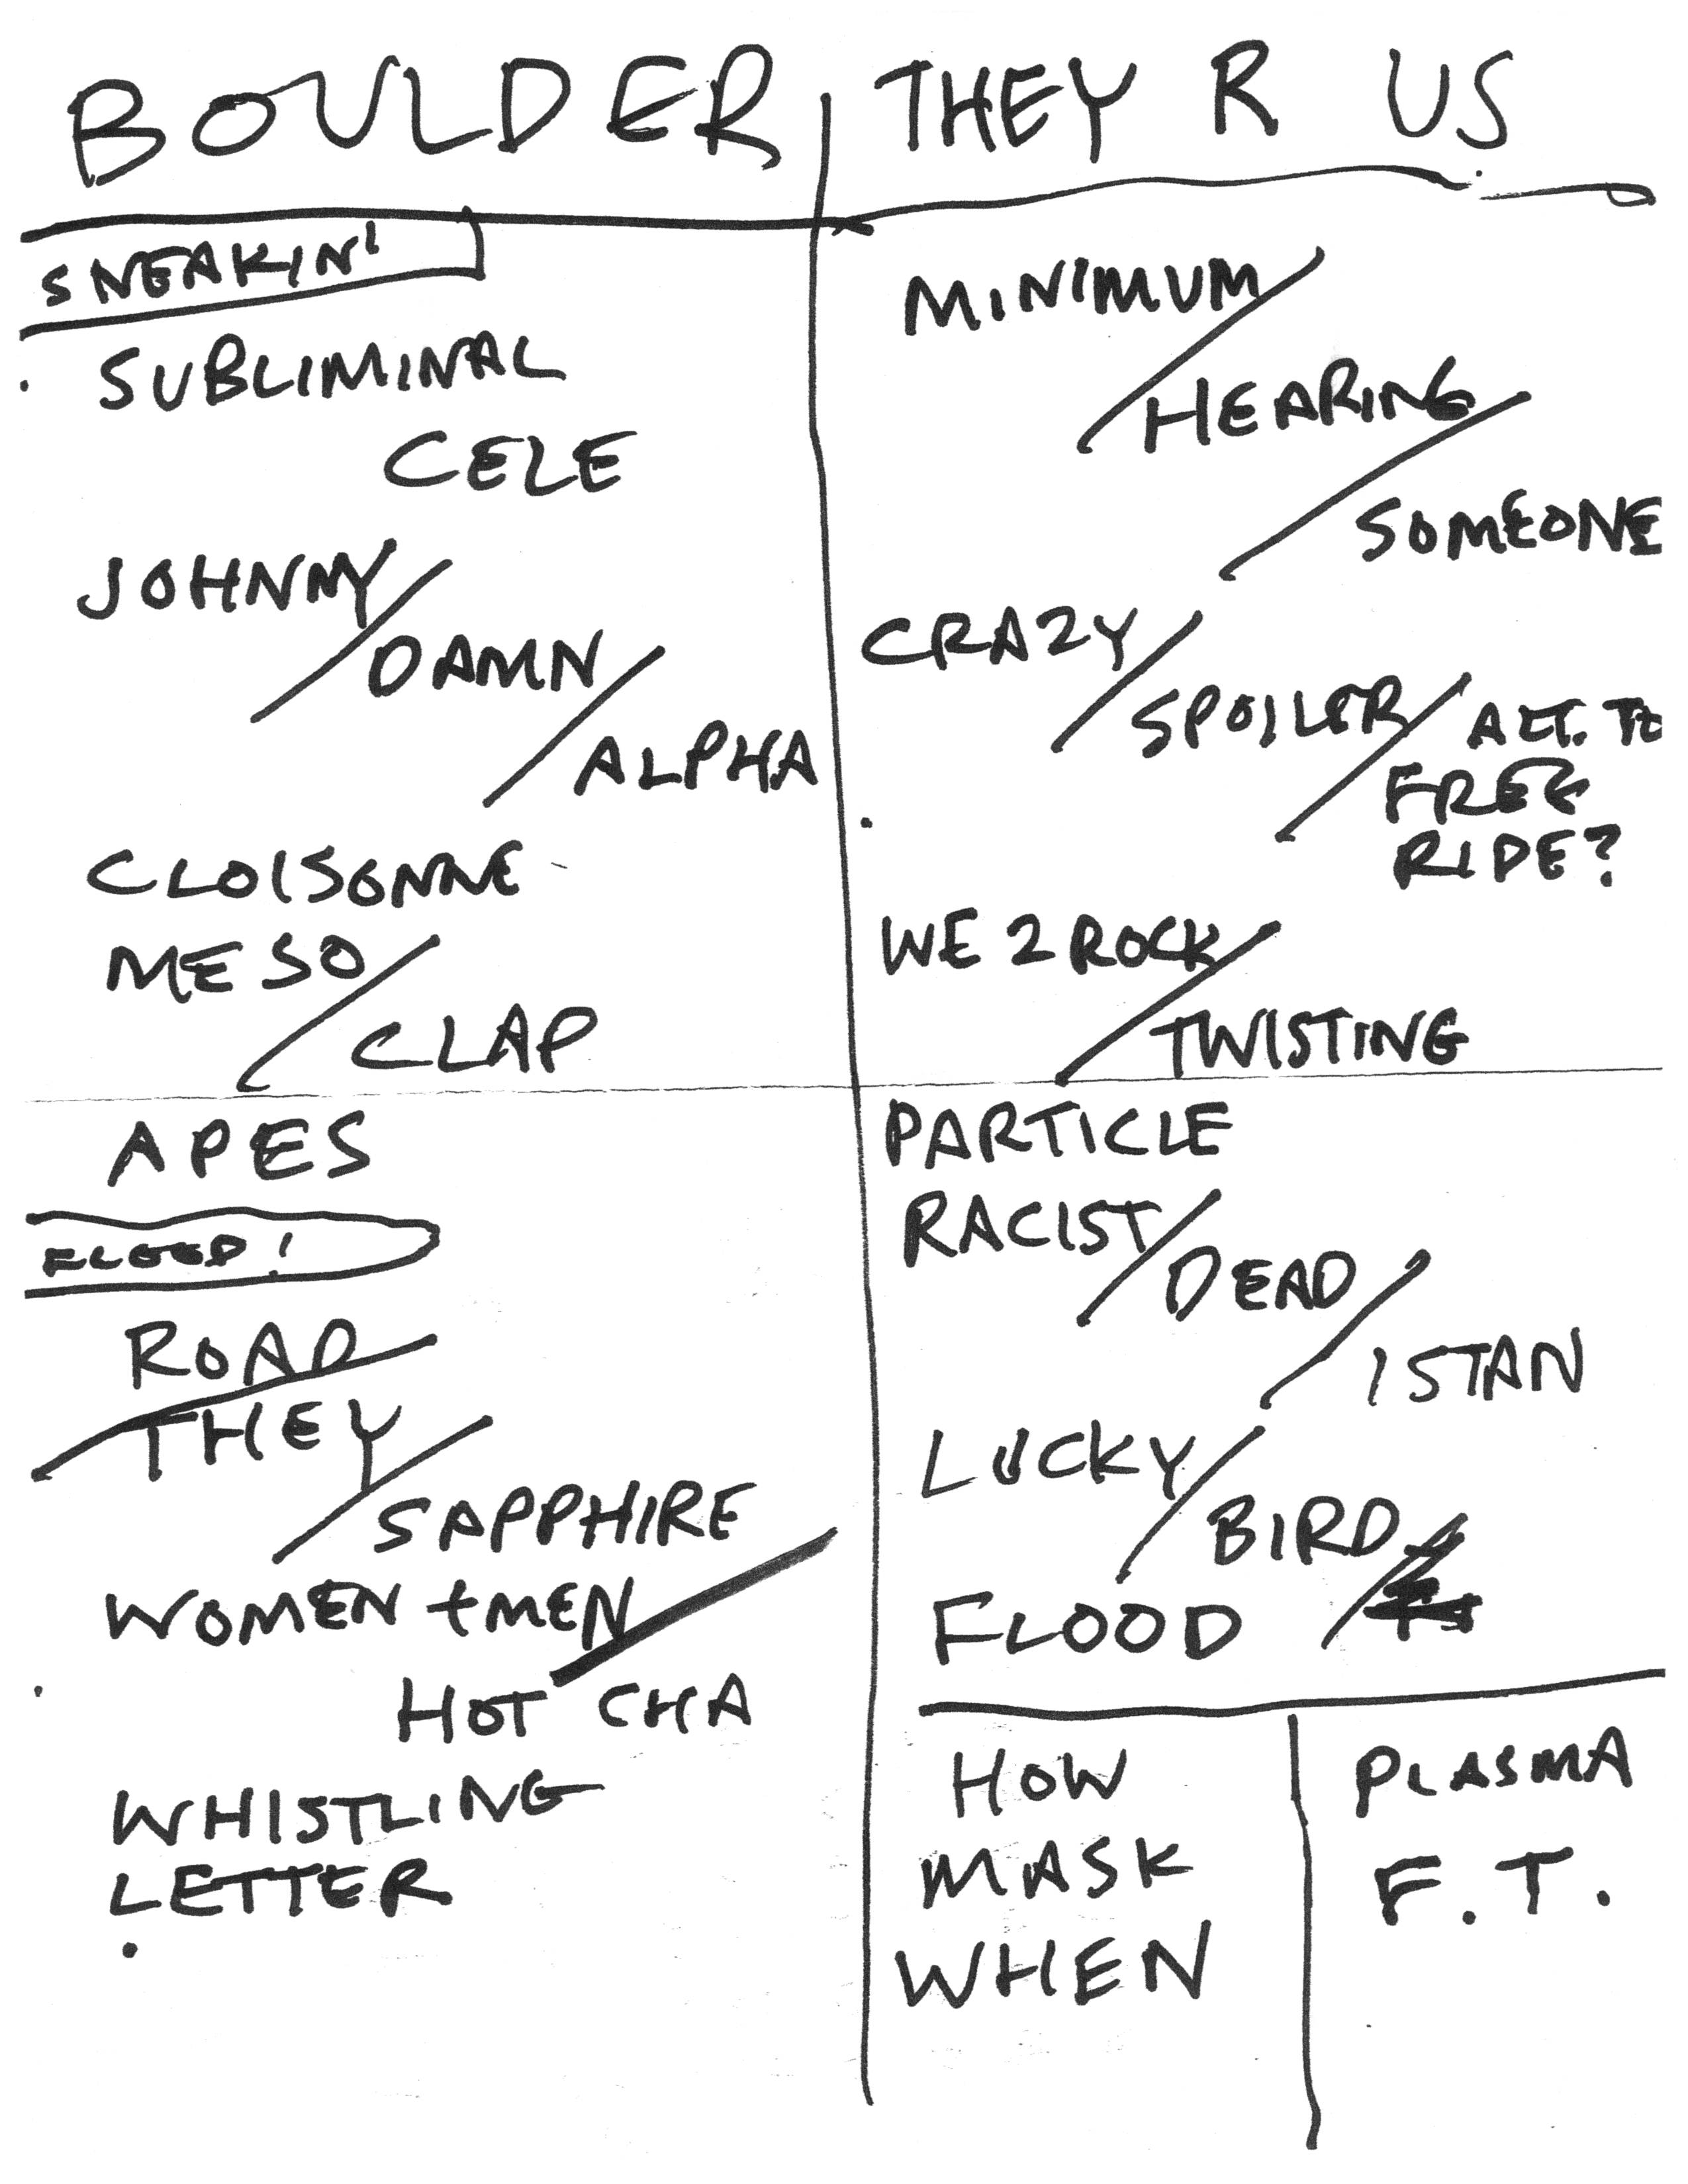 BOULDER
SNEAKIN'
SUBLIMINAL
CELE
JOHNNY/
DAMN/
ALPHA
CLOISONNE
MESO/
CLAP
APES
FLOOD!
ROAD/
THEY/
SAPPHIRE
WOMEN + MEN/
HOT CHA
WHISTLING
LETTER
THEY R US
MINIMUM/
HEARING/
SOMEONE
CRAZY/
SPOILER/ ALT. TO
FREE
RIDE?
WE 2 ROCK/
TWISTING
PARTICLE
RACIST/
DEAD/
ISTAN
LUCKY/
BIRD/
FLOOD
HOW
MASK
WHEN
PLASMA
F.T.